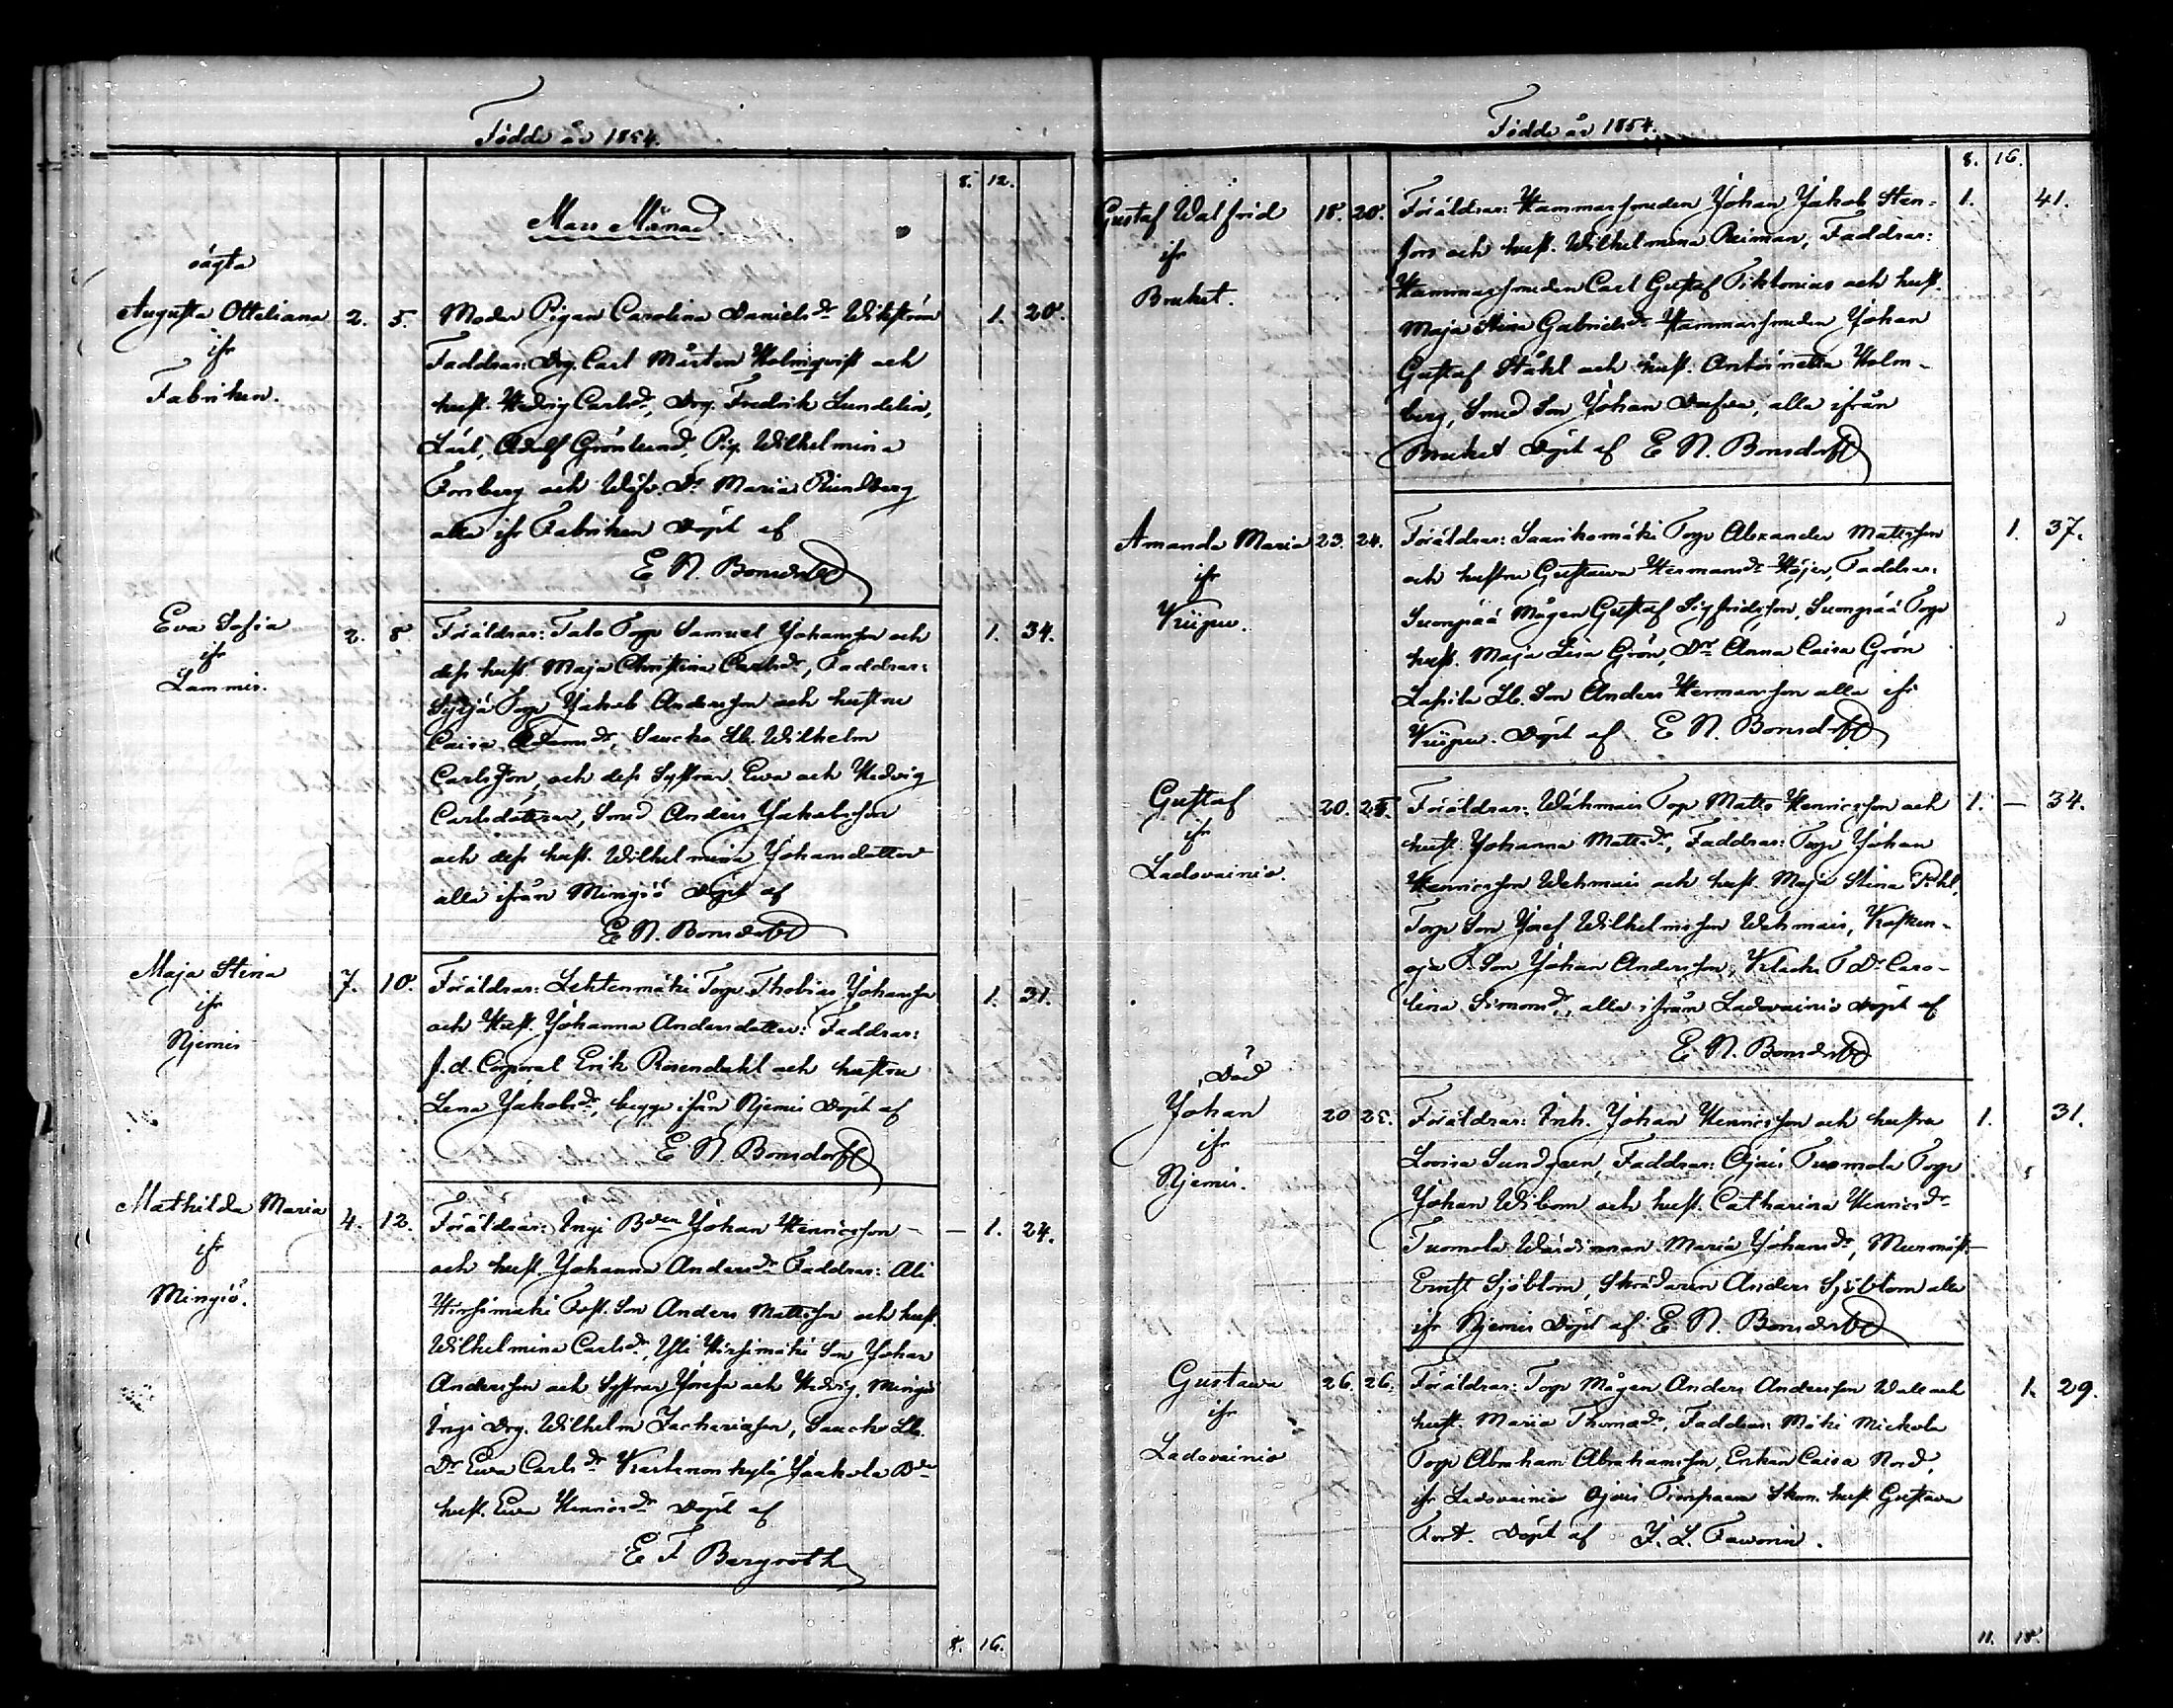 Födde år 1854.
8. 12.
Mars Månad
oägta
Augusta Otteliana 2. 5. Moder Pigan Carolina Danielsdr Wikström 1. 20.
ifr Faddrar: Drg. Carl Mårten Holmqvist och
Fabriken. hust. Hedvig Carlsdr, Drg. Fredrik Lundelin,
Lärl. Adolf Grönlund, Pig. Wilhelmina
Forsberg och Dr Maria Rundberg
alla ifr Fabriken Döpt af
E N. Bonsdorff
Eva Sofia 2. 8. Föräldrar: Talo Torp Samuel Johansson och 1. 34.
ifr dess hust. Maja Christina Carlsdr, Faddrar:
Lammis. Torp Jakob Andersson och hustru
Caisa Adamsdr, Wilhelm
Carlsson, och dess Systrar, Ewa och Hedvig
Carlsdöttrar, Smed Anders Jakobsson
och dess hust. Wilhelmina Johansdotter
alla ifrån Mingiö Döpt af
E. N. Bonsdorff
Maja Stina 7. 10. Föräldrar: Lehtenmäki Torp. Thobias Johansson 1. 31.
ifr och Hust. Johanna Andersdotter: Faddrar:
Njemis f.d. Corporal Erik Rosendahl och hustru
Lena Jakobsdr, begge ifrån Njemis Döpt af
E N. Bonsdorff
Mathilda Maria 4. 12. Föräldrar: Ingi Bden Johan Henricsson — 1. 24.
ifr och hust. Johanna Andersdr Faddrar: Ali
Mingiö. Hirsimäki Son Anders Mattsson och hust.
Wilhelmina Carlsdr, Yli Hirsimäki Son Johan
Andersson och Systrar Josefa och Hedvig, Mingiö
Ingi Drg. Wilhelm Zachariasson,
Dr Ewa Carlsdr Jaakola
hust. Ewa Henricsdr Döpt af
E F Bergroth
8. 16.
Födde år 1854.
8. 16.
Gustaf Walfrid 18. 20. Föräldrar: Hammarsmeden Johan Jakob Sten- 1. 41.
ifr fors och hust. Wilhelmina Reiman, Faddrar:
Bruket. Hammarsmeden Carl Gustaf Tiktonius och hust.
Maja Stina Gabrielsdr Hammarsmeden Johan
Gustaf Ståhl och hust. Antoinetta Holm-
berg, Smed Son Johan alla ifrån
Bruket Döpt af E N. Bonsdorff
Amanda Maria 23. 24. Föräldrar: Saarikomäki Torp Alexander Mattsson 1. 37.
ifr och hustru Gustawa Hermansdr Höjer, Faddrar:
Suonpää Mågen Gustaf Sigfridsson, Suonpää Torp
hust. Maja Lisa Grön, Dr Anna Caisa Grön
Son Anders Hermansson alla ifr
Döpt af E N. Bonsdorff
Gustaf 20. 25. Föräldrar: Wähmais Torp Matts Henricsson och 1. — 34.
ifr hust. Johanna Mattsdr, Faddrar: Torp Johan
Ladovainio. Henricsson Wehmais och hust. Maja Stina
Torp Son Josef Wilhelmsson Wehmais,
oja Son Johan Andersson, Caro-
lina Simonsdr, alla ifrån Ladovainio Döpt af
E. N. Bonsdorff
Död
Johan 20 25. Föräldrar: Inh. Johan Henricsson och hustru 1. 31.
ifr Lovisa Sundgren, Faddrar: Ojais Tuomola Torp
Njemis. Johan Wibom och hust. Catharina Henricsdr
Tuomola Wärdinnan Maria Johansdr, Murmäst.
Ernst Sjöblom, Skräddaren Anders Sjöblom alla
ifr Njemis Döpt af E. N. Bonsdorff
Gustawa 26. 26. Föräldrar: Torp Mågen Anders Andersson Wall och 1. 29.
ifr hust. Maria Thomasdr, Faddrar: Mäki Mickola
Ladovainio Torp Abraham Abrahamsson, Enkan Caisa Nord,
ifr Ladovainio Ojais Skom. hust. Gustava
Fort. Döpt af J. L. Fawonin.
11. 18.